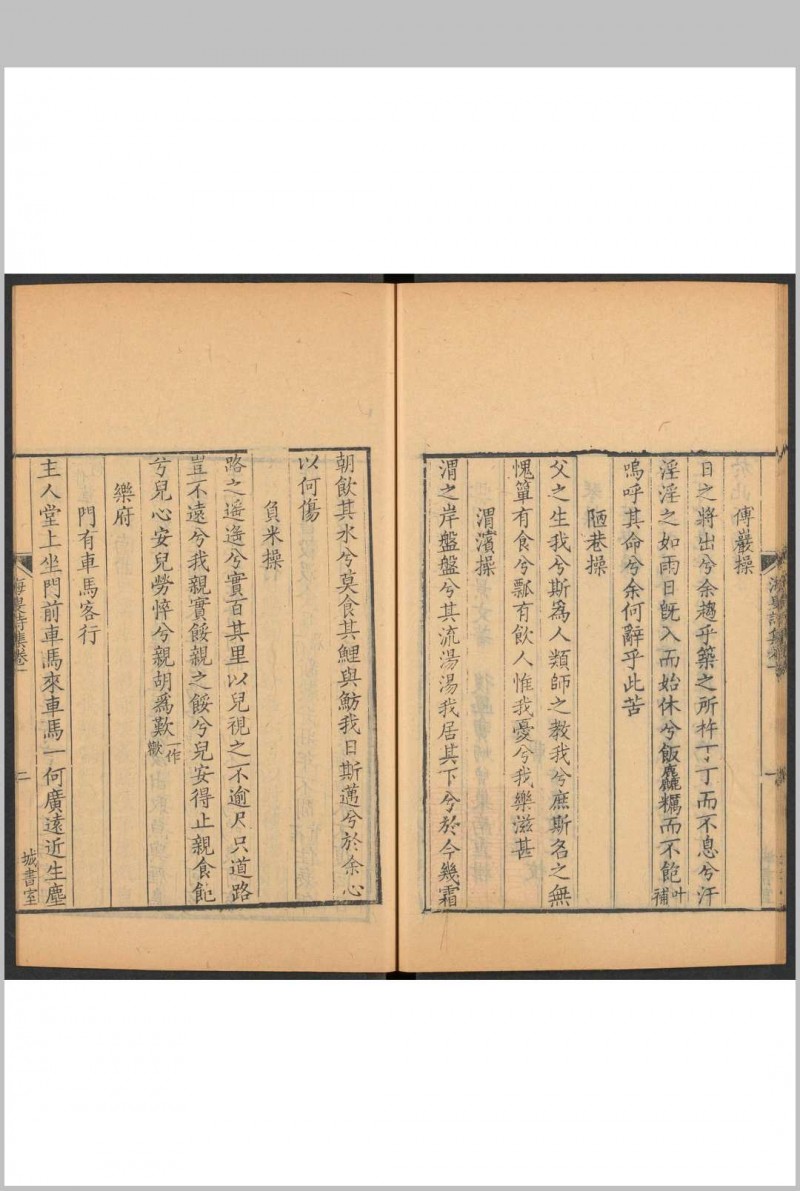 傅巖操
日之將出兮余趨乎築之所杵丁丁而不息兮汗
淫淫之如雨日旣入而始休兮飯麤糲而不飽叶補
嗚呼其命兮余何辭乎此苦
陋巷操
父之生我兮斯爲人類師之教我兮庶斯名之無
愧簞有食兮瓢有飲人惟我憂兮我樂滋甚
渭濱操
渭之岸盤盤兮其流湯湯我居其下兮於今幾霜
朝飲其水兮莫食其鯉與魴我日斯邁兮於余心
以何傷
負米操
路之遥遥兮實百其里以兒視之不逾尺只道路
豈不遠兮我親實餒親之餒兮兒安得止親食飽
兮兒心安兒勞悴兮親胡爲歎一作
樂府
門有車馬客行
主人堂上坐門前車馬來車馬一何廣遠近生塵
海叟詩集卷一
二
城書室